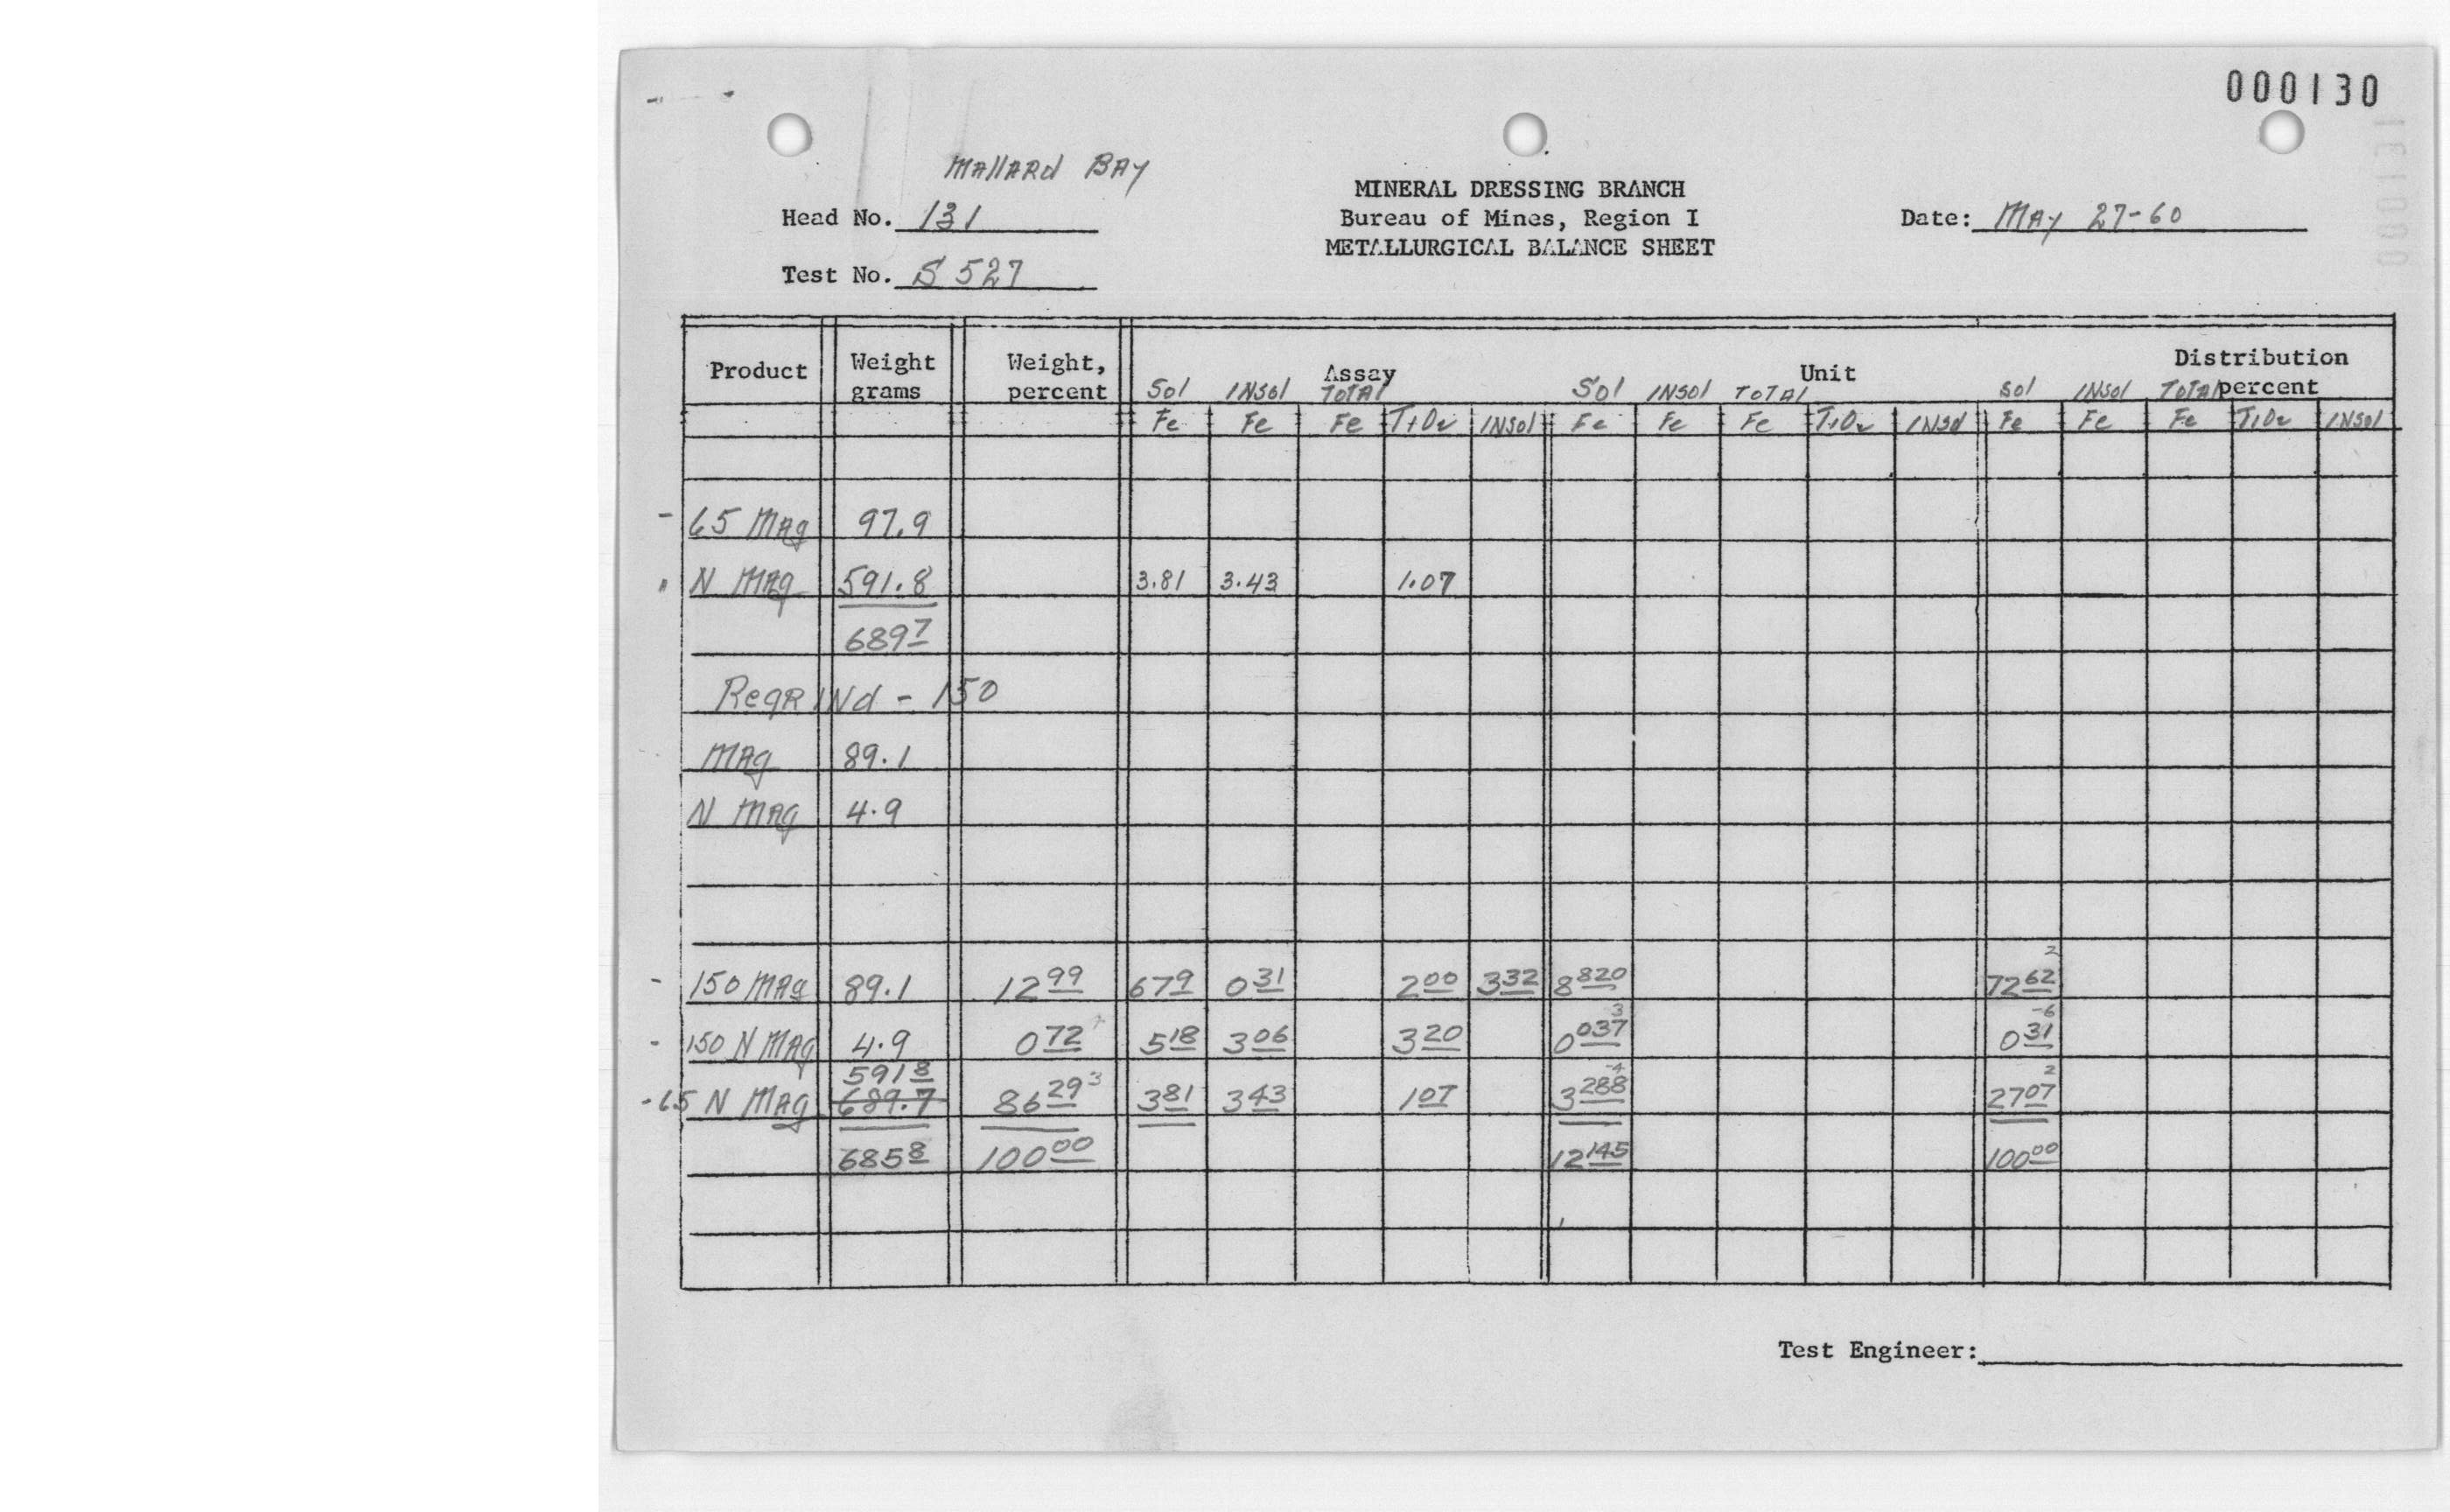 000130
Mallard Bay
MINERAL DRESSING BRANCH
Head No. 131 Bureau of Mines, Region I Date: May 27-60
METALLURGICAL BALANCE SHEET
Test No. S 527
Product Weight grams Weight, percent Assay Unit Distribution percent
Sol INSol TOTAL Sol INSol TOTAL Sol INSol TOTAL
Fe Fe Fe TiO2 INSol Fe Fe Fe TiO2 INSol Fe Fe Fe TiO2 INSol
- 65 Mag 97.9
" N Mag 591.8 3.81 3.43 1.07
689 7
Regrind - 150
Mag 89.1
N Mag 4.9
2
- 150 Mag 89.1 12 99 67 9 0 31 2 00 3 32 8 820 72 62
3 -6
- 150 N Mag 4.9 0 72 5 18 3 06 3 20 0 037 0 31
591 8 3 -4 2
-65 N Mag 689.7 86 29 3 81 3 43 1 07 3 288 27 07
685 8 100 00 12 145 100 00
Test Engineer: